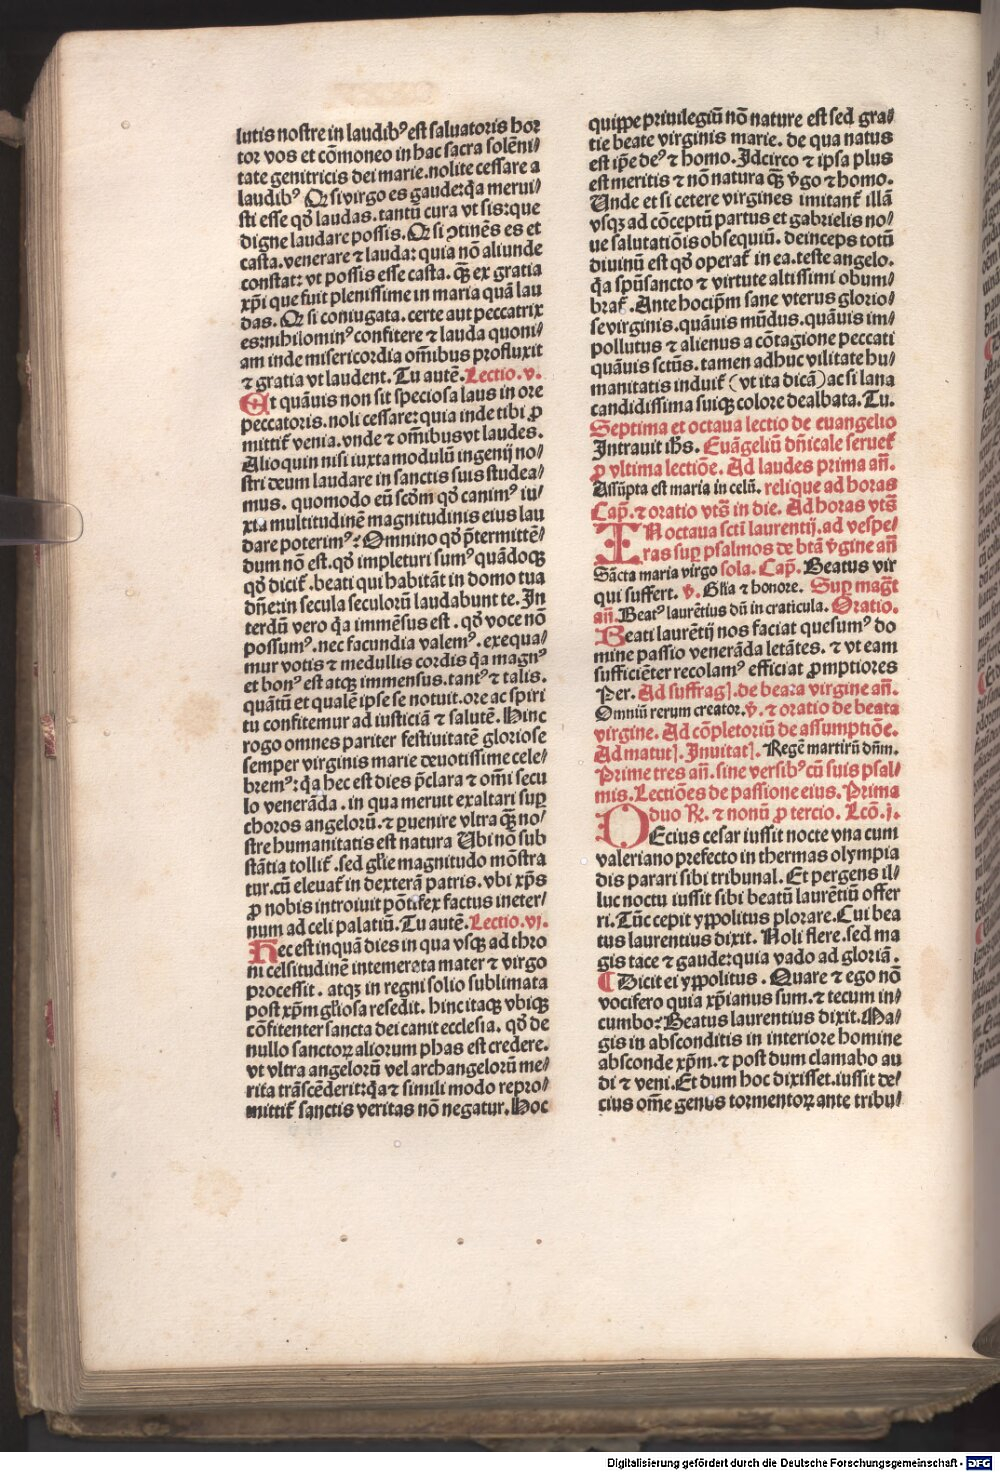 lutis nostre in laudibꝰ est saluatoris hor
tor vos et cōmoneo in hac sacra solēni⸗
tate genitricis dei marie.nolite cessare a
laudibꝰ Qꝛ si virgo es gaude:q̇a merui⸗
sti esse qd̄ laudas.tantū cura vt sis:que
digne laudare possis.Qꝛ si ↄtinēs es et
casta.venerare ⁊ lauda: quia nō aliunde
constat: vt possis esse casta. q̄ꝫ ex gratia
xp̄i que fuit plenissime in maria quā lau
das. Qꝛ si coniugata.certe aut peccatrix
es:nihilominꝰ confitere ⁊ lauda quoni⸗
am inde misericordia om̄ibus profluxit
⁊ gratia vt laudent. Tu autē. Lectio.v.
Et quāuis non sit speciosa laus in ore
peccatoris.noli cessare:quia inde tibi ꝓ
mittit̄ venia.vnde ⁊ om̄ibus vt laudes.
Alioquin nisi iuxta modulū ingenij no⸗
stri deum laudare in sanctis suis studea⸗
mus. quomodo eū scd̄m qd̄ canimꝰ iu⸗
xta multitudinē magnitudinis eius lau
dare poterimꝰ: Omnino qd̄ p̄termittē⸗
dum nō est.qd̄ impleturi sumꝰ quādoqꝫ
qd̄ dicit̄.beati qui habitāt in domo tua
dn̄e:in secula seculorū laudabunt te. In
terdū vero q̇a immēsus est.qd̄ voce nō
possumꝰ.nec facundia valemꝰ.exequa⸗
mur votis ⁊ medullis cordis q̇a magnꝰ
et bonꝰ est atqꝫ immensus.tantꝰ ⁊ talis.
quātū et qualē ipse se notuit.ore ac spiri
tu confitemur ad iusticiā ⁊ salutē. Hinc
rogo omnes pariter festiuitatē gloriose
semper virginis marie deuotissime cele⸗
bremꝰ:q̇a hec est dies p̄clara ⁊ om̄i secu
lo venerāda.in qua meruit exaltari suꝑ
choros angelorū.⁊ ꝑuenire vltra q̄ꝫ no⸗
stre humanitatis est natura Ubi nō sub
stātia tollit̄.sed gl̄ie magnitudo mōstra
tur.cū eleuat̄ in dexterā patris.vbi xp̄s
ꝓ nobis introiuit pōtifex factus in eter⸗
num ad celi palatiū. Tu autē. Lectio.vj.
Hec est inquā dies in qua vsqꝫ ad thro
ni celsitudinē intemerata mater ⁊ virgo
processit.atqꝫ in regni solio sublimata
post xp̄m gl̄iosa resedit.hinc itaqꝫ vbiqꝫ
cōfitenter sancta dei canit ecclesia.qd̄ de
nullo sanctoꝝ aliorum phas est credere.
vt vltra angelorū vel archangelorū me⸗
rita trāscēderit:q̇a ⁊ simili modo repro⸗
mittit̄ sanctis veritas nō negatur.Hoc
quippe priuilegiū nō nature est sed gra⸗
tie beate virginis marie. de qua natus
est ip̄e deꝰ ⁊ homo.Idcirco ⁊ ipsa plus
est meritis ⁊ nō natura q̄ꝫ v̇go ⁊ homo.
Unde et si cetere virgines imitant̄ illā
vsqꝫ ad cōceptū partus et gabrielis no⸗
ue salutatiōis obsequiū. deinceps totū
diuinū est qd̄ operat̄ in ea.teste angelo.
q̇a spūsancto ⁊ virtute altissimi obum⸗
brat̄.Ante hoc ip̄m sane vterus glorio⸗
se virginis.quāuis mūdus.quāuis im⸗
pollutus ⁊ alienus a cōtagione peccati
quāuis sctūs.tamen adhuc vilitate hu⸗
manitatis induit̄ (vt ita dicā) ac si lana
candidissima suiqꝫ colore dealbata. Tu.
Septima et octaua lectio de euangelio
Intrauit ih̄s. Euāgeliū dn̄icale seruet̄
ꝓ vltima lectiōe. Ad laudes prima an̄.
Assūpta est maria in celū. relique ad horas
Cap̄.⁊ oratio vts̄ in die. Ad horas vts̄
IN octaua scti laurentij.ad vespe⸗
ras suꝑ psalmos de btā v̇gine an̄
Sācta maria virgo sola. Cap̄. Beatus vir
qui suffert. v̇. Gl̄ia ⁊ honore. Suꝑ maḡt
an̄. Beatꝰ laurētius dū in craticula. Oratio.
Beati laurētij nos faciat quesumꝰ do
mine passio venerāda letātes. ⁊ vt eam
sufficiēter recolamꝰ efficiat ꝓmptiores
Per. Ad suffraḡ.de beata virgine an̄.
Omniū rerum creator. v̇. ⁊ oratio de beata
virgine. Ad cōpletoriū de assumptiōe.
Ad matut̄. Inuitat̄. Regē martirū dn̄m.
Prime tres an̄.sine versibꝰ cū suis psal⸗
mis. Lectiōes de passione eius. Prima
duo R̄. ⁊ nonū ꝓ tercio. Lcō.j.
DEcius cesar iussit nocte vna cum
valeriano prefecto in thermas olympia
dis parari sibi tribunal. Et pergens il⸗
luc noctu iussit sibi beatū laurētiū offer
ri. Tūc cepit yppolitus plorare. Cui bea
tus laurentius dixit. Noli flere.sed ma
gis tace ⁊ gaude:quia vado ad gloriā.
Dicit ei yppolitus. Quare ⁊ ego nō
vocifero quia xp̄ianus sum.⁊ tecum in⸗
cumbo: Beatus laurentius dixit.Ma⸗
gis in absconditis in interiore homine
absconde xp̄m.⁊ post dum clamabo au
di ⁊ veni.Et dum hoc dixisset.iussit de⸗
cius om̄e genus tormentoꝝ ante tribu⸗
Digitalisierung gefördert durch die Deutsche Forschungsgemeinschaft - DFG